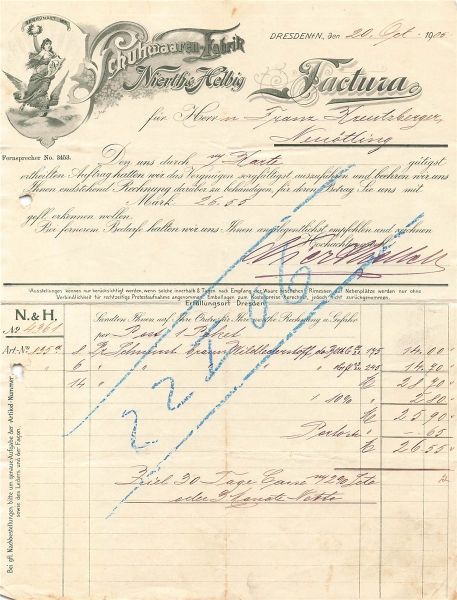 Schuhwaaren-Fabrik
Nierth & Helbig
DRESDEN-N., den 20. Oct. 1900
Factura
für Herrn Franz Kreutzberger,
Neuötting
Fernsprecher No. 3453.
Den uns durch Karte gütigst
ertheilten Auftrag hatten wir das Vergnügen sorgfältigst auszuführen und beehren wir uns
Ihnen endstehend Rechnung darüber zu behändigen, für deren Betrag Sie uns mit
Mark 26.55
gefl. erkennen wollen.
Bei fernerem Bedarfe halten wir uns Ihnen angelegentlichst empfohlen und zeichnen
Hochachtend
*Ausstellungen können nur berücksichtigt werden, wenn solche innerhalb 8 Tagen nach Empfang der Waare geschehen. Rimessen auf Nebenplätze werden nur ohne
Verbindlichkeit für rechtzeitige Protestaufnahme angenommen. Emballagen zum Kostenpreise berechnet, jedoch nicht zurückgenommen.
Erfüllungsort Dresden.
N. & H.
No. 4961
Sandten Ihnen auf Ihre Ordre für Ihre werthe Rechnung u. Gefahr
per Post 1 Packet
Art-No. 125a 8 Pr. 195 14.00
6 " 245 14.20
14 " M 28.70
1 10% 2.80
M 25.90
Porto " -.65
M 26.55
Ziel 30 Tage Cassa 2%
oder 3 Monate Netto
Bei gfl. Nachbestellungen bitte um genaue Aufgabe der Artikel-Nummer
sowie des Leders und der Façon.